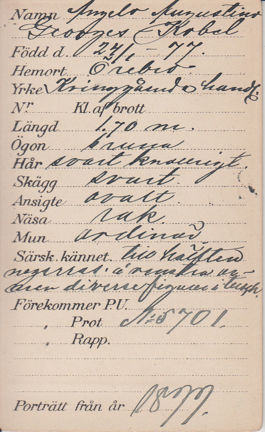 Namn Angelo Augustino
Georges Kobel
Född d. 24/1 - 77.
Hemort Örebro.
Yrke Kringgående handl.
Nr Kl. af brott
Längd 1.70 m.
Ögon bruna
Hår svart knollrigt.
Skägg svart.
Ansigte ovalt
Näsa rak.
Mun ordinär
Särsk. kännet. till hälften
negerras: å venstra
diverse figurer i
Förekommer P.U.
" Prot № 5701.
" Rapp.
Porträtt från år